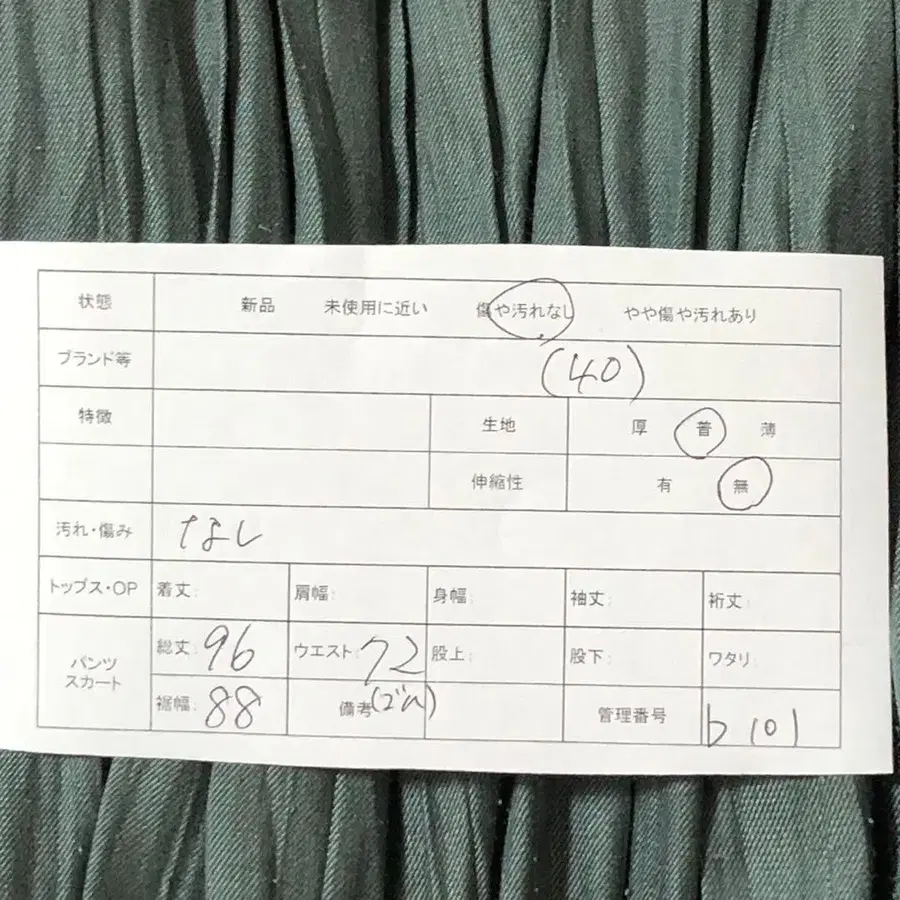 状態 新品 未使用に近い 傷や汚れなし やや傷や汚れあり
ブランド等 (40)
特徴 生地 厚 普 薄
伸縮性 有 無
汚れ・傷み なし
トップス・OP 着丈: 肩幅: 身幅: 袖丈: 裄丈:
パンツ スカート 総丈: 96 ウエスト: 72 股上: 股下: ワタリ:
裾幅: 88 備考 (ゴム) 管理番号 b101